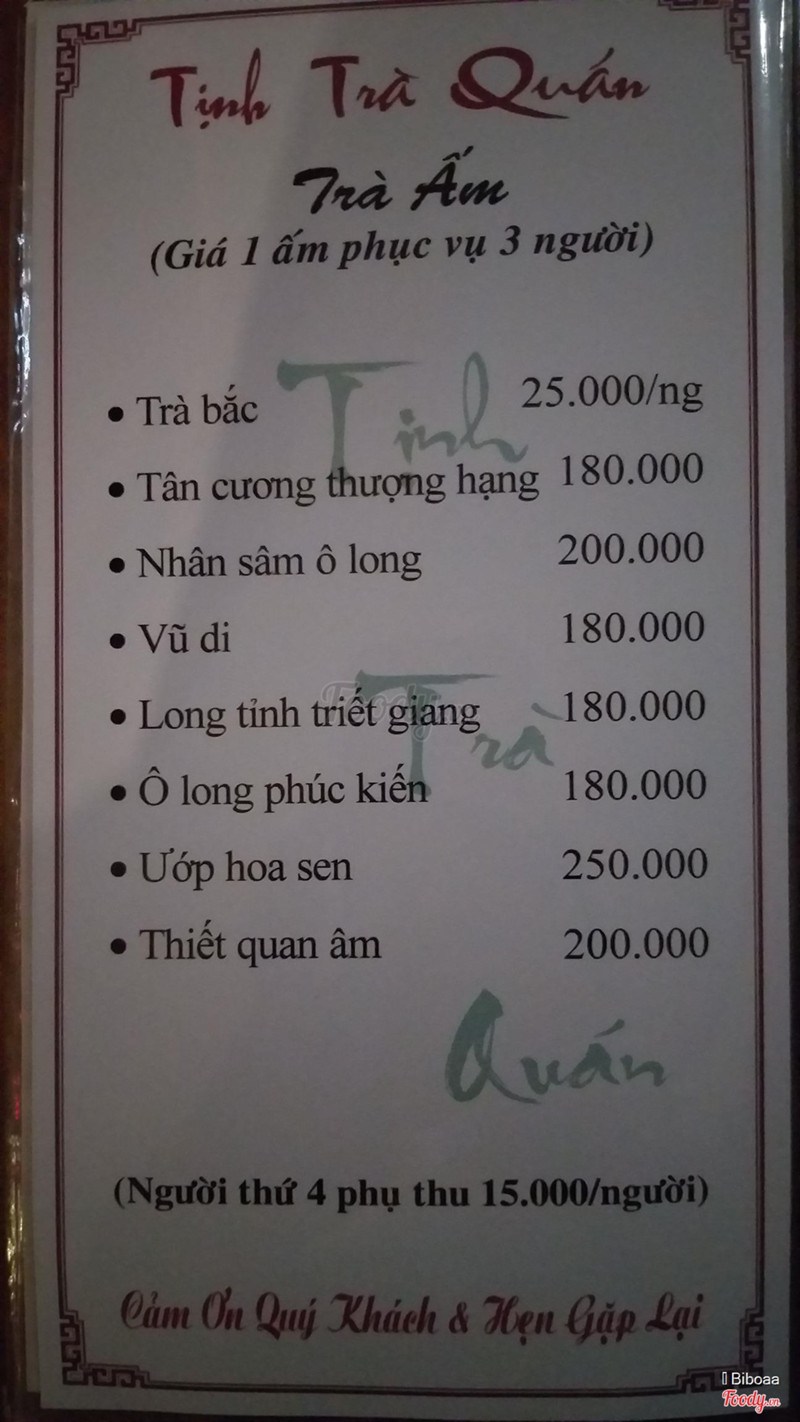 Tịnh Trà Quán
Trà Ấm
(Giá 1 ấm phục vụ 3 người)
• Trà bắc 25.000/ng
• Tân cương thượng hạng 180.000
• Nhân sâm ô long 200.000
• Vũ di 180.000
• Long tỉnh triết giang 180.000
• Ô long phúc kiến 180.000
• Ướp hoa sen 250.000
• Thiết quan âm 200.000
Tịnh
Trà
Quán
Foody
(Người thứ 4 phụ thu 15.000/người)
Cảm Ơn Quý Khách & Hẹn Gặp Lại
Biboaa
Foody.vn